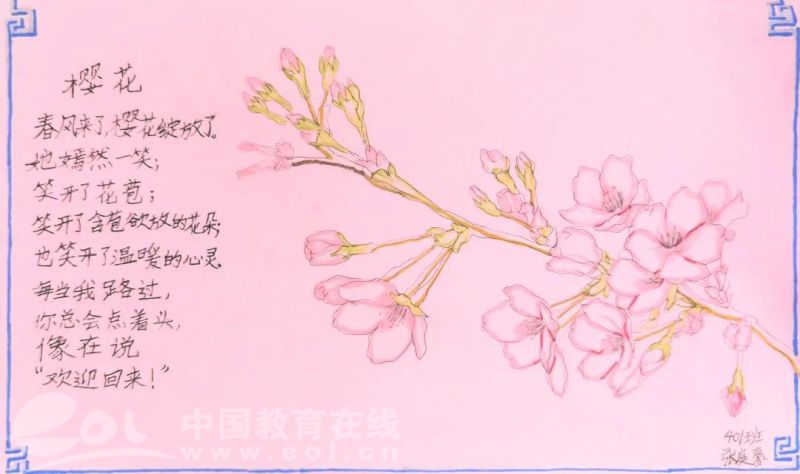 樱花
春风来了,樱花绽放了。
她嫣然一笑;
笑开了花苞;
笑开了含苞欲放的花朵;
也笑开了温暖的心灵.
每当我路过,
你总会点着头,
像在说
“欢迎回来!”
eol 中国教育在线
www.eol.cn
401班